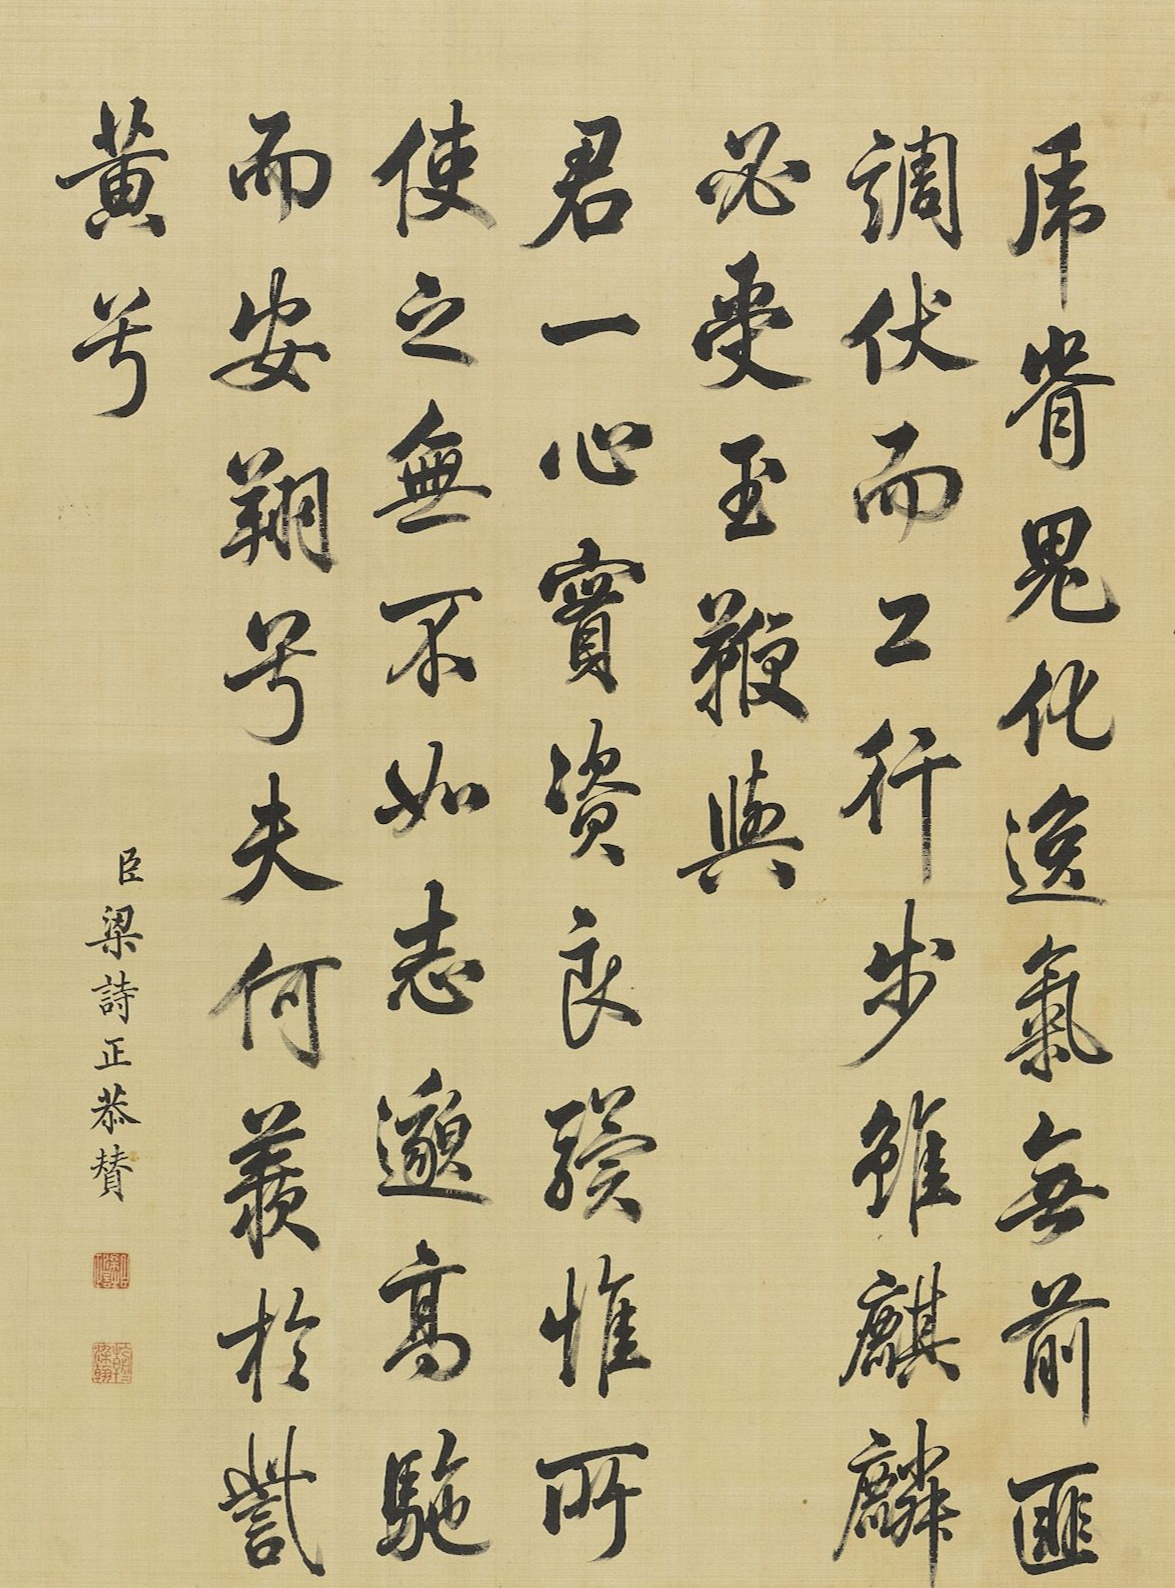 虎脊鬼化逸氣無前匪
調伏而工行步雖麒麟
必受玉鞭與
君一心實資良驥惟所
使之無不如志邈高馳
而安翔兮夫何羨於訾
黃兮
臣梁詩正恭贊